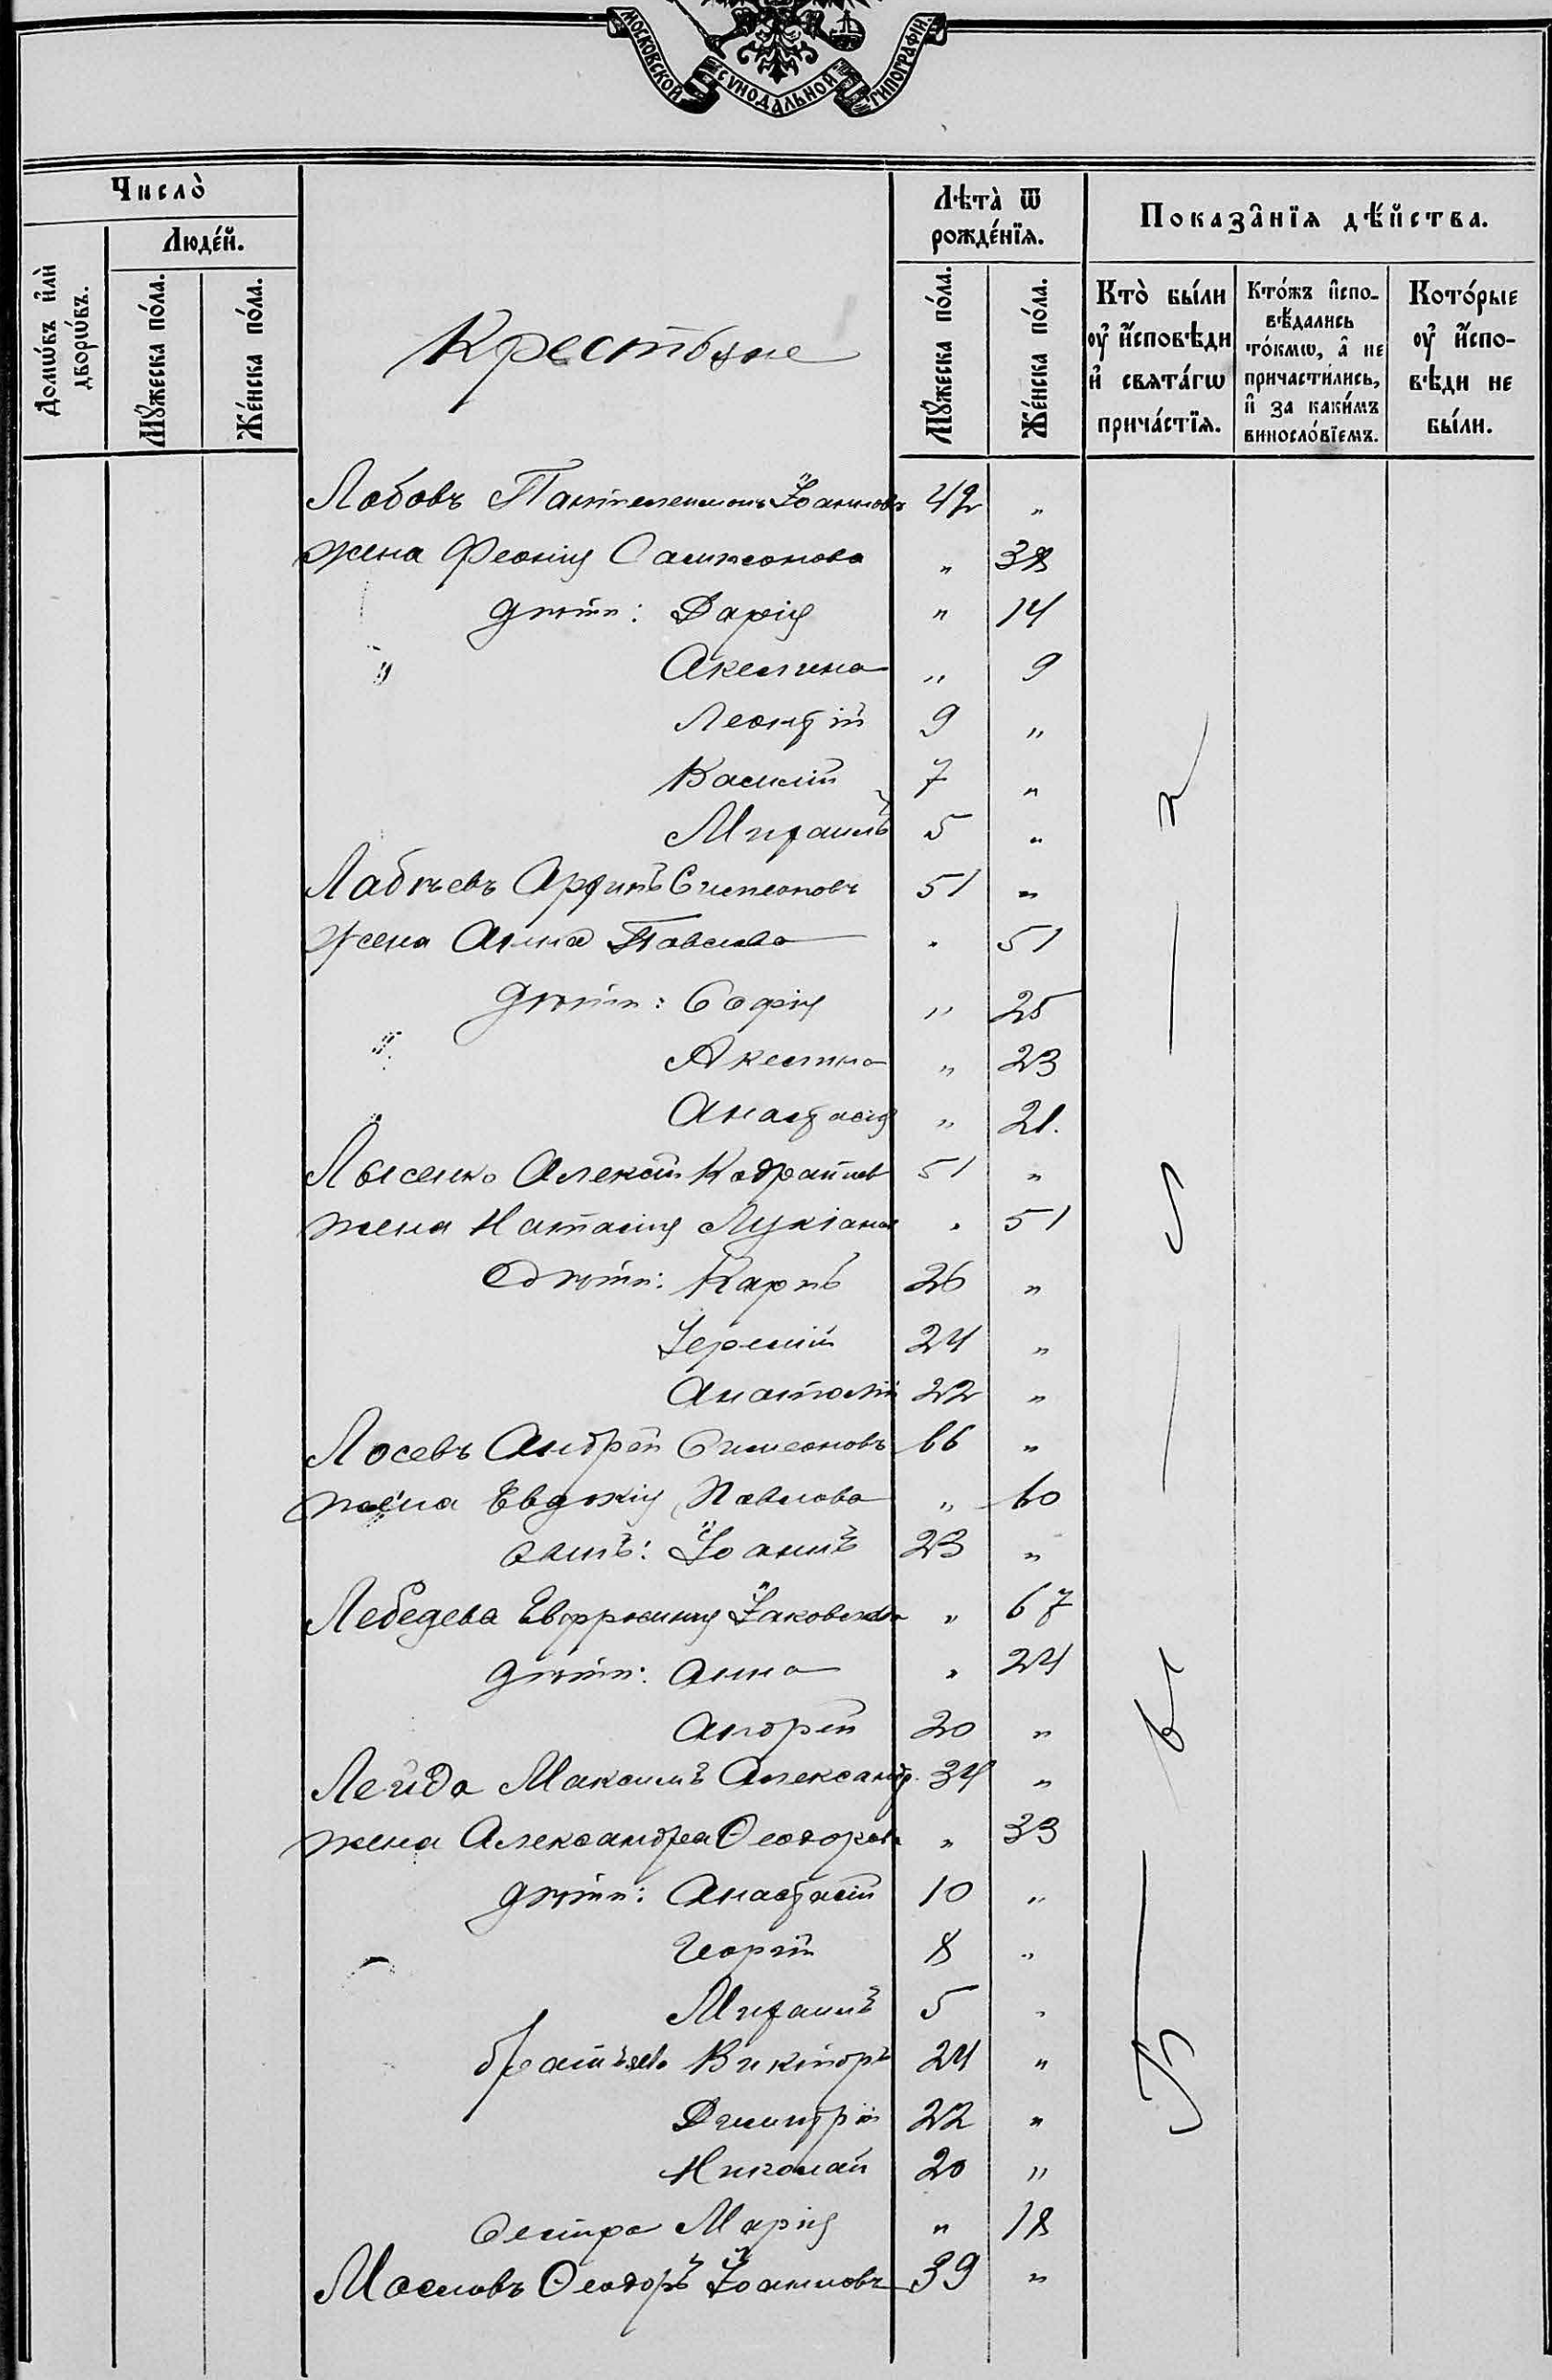 МОСКОВСКОЙ СѴНОДАЛЬНОЙ ТИПОГРАФІИ.
Число̀
Домѡ́въ и҆лѝ дворѡ́въ.
Люде́й.
Мꙋ́жеска по́ла.
Же́нска по́ла.
Крестьяне
Лѣта̀ ѿ рожде́нїѧ.
Мꙋ́жеска по́ла.
Же́нска по́ла.
Показа̑нїѧ дѣ́йства.
Кто̀ бы́ли ᲂу҆ и҆́сповѣди и҆ свѧта́гѡ прича́стїѧ.
Кто́жъ и҆спо-
вѣ́дались то́кмѡ, а҆ не причасти́лись, и҆ за каки́мъ виносло́вїемъ.
Кото́рые ᲂу҆ и҆́спо-
вѣди не бы́ли.
Лобовъ Пантелеимонъ Іоанновъ 42 "
жена Феонія Сампсонова " 38
дѣти: Дарія " 14
Акелина " 9
Леонтій 9 "
Василій 7 "
Михаилъ 5 "
Лабтѣевъ Симеоновъ 51 "
жена Анна Павлова " 51
дѣти: Софія " 25
Акелина " 23
Анастасія " 21.
Лысенко Алексій 51 "
жена Наталія Лукіанов " 51
дѣти: Карпъ 26 "
Іеремій 24 "
Анатолій 22 "
Лосевъ Андрей Симеоновъ 66 "
жена Евдокія Павлова " 60
сынъ: Іоаннъ 23 "
Лебедева Евфросинія Іаковлева " 67
дѣти: Анна " 24
Андрей 20 "
Лейда Максимъ Александр. 34 "
жена Александра Ѳеодоров " 33
дѣти: Анастасій 10 "
Георгій 8 "
Михаилъ 5 "
братья Викторъ 24 "
Димитрій 22 "
Николай 20 "
Сестра Марія " 18
Масловъ Ѳеодоръ Іоанновъ 39 "
Б — ы — л — и